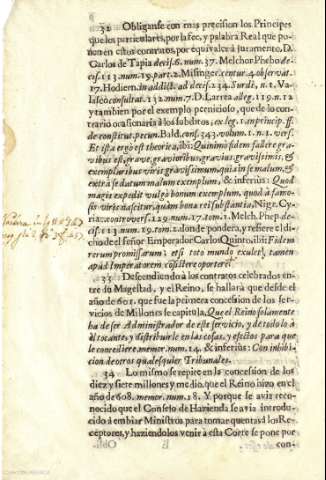 32 Obliganse con mas precision los Principes
que los particulares, por la fee, y palabra Real que po-
nen en estos contratos, por equivaler à juramento, D.
Carlos de Tapia decis. 6. num. 37. Melchor Phebo de-
cis. 113. num. 19. part. 2. Misinger. centur. 4. observat.
17. Hodiern. in addict. ad decis. 234. Surdi, n. 1. Va-
lasco consultat. 132. num. 7. D. Larrea alleg. 119. n. 12
y tambien por el exemplo pernicioso, que de lo con-
trario ocasionaria à los subditos, ex leg. 1. in princip. ff.
de constitut. pecun. Bald. cons. 343. volum. 1. n. 1. vers.
Et ista ergo est theorica, ibi: Quinimo fidem fallere gra-
vibus est grave, gravioribus gravius, gravissimis, &
exemplaribus viris gravissimum, quia in se malum, &
extra se datum malum exemplum, & inferius: Quod
magis expedit vulgo bonum exemplum, quod à famo-
sis viris dascitur, quàm bona rei substantia, Nigr. Cy-
riac. controvers. 129. num. 17. tom. 1. Melch. Pheb. de-
cis. 113. num. 19. tom. 2. donde pondera, y refiere el di-
cho de el señor Emperador Carlos Quinto, ibi: Fidem
rerum promissarum; etsi toto mundo exulet; tamen
apud Imperatorem consistere oportere.
33 Descendiendo à los contratos celebrados en-
tre su Magestad, y el Reino, se hallarà que desde el
año de 601. que fue la primera concession de los ser-
vicios de Millones se capitula, Que el Reino solamente
ha de ser Administrador de este servicio, y de todo lo à
èl tocante, y distribuirle en las cosas, y efectos para que
se concediere. memor. num. 14. & inferius: Con inhibi-
cion de otros qualesquier Tribunales.
34 Lo mismo se repite en la concession de los
diez y siete millones y medio, que el Reino hizo en el
año de 608. memor. num. 18. Y porque se avia reco-
nocido que el Consejo de Hazienda se avia introdu-
cido à embiar Ministros para tomar quentas à los Re-
ceptores, y haziendolos venir à esta Corte se pone por
E
con-